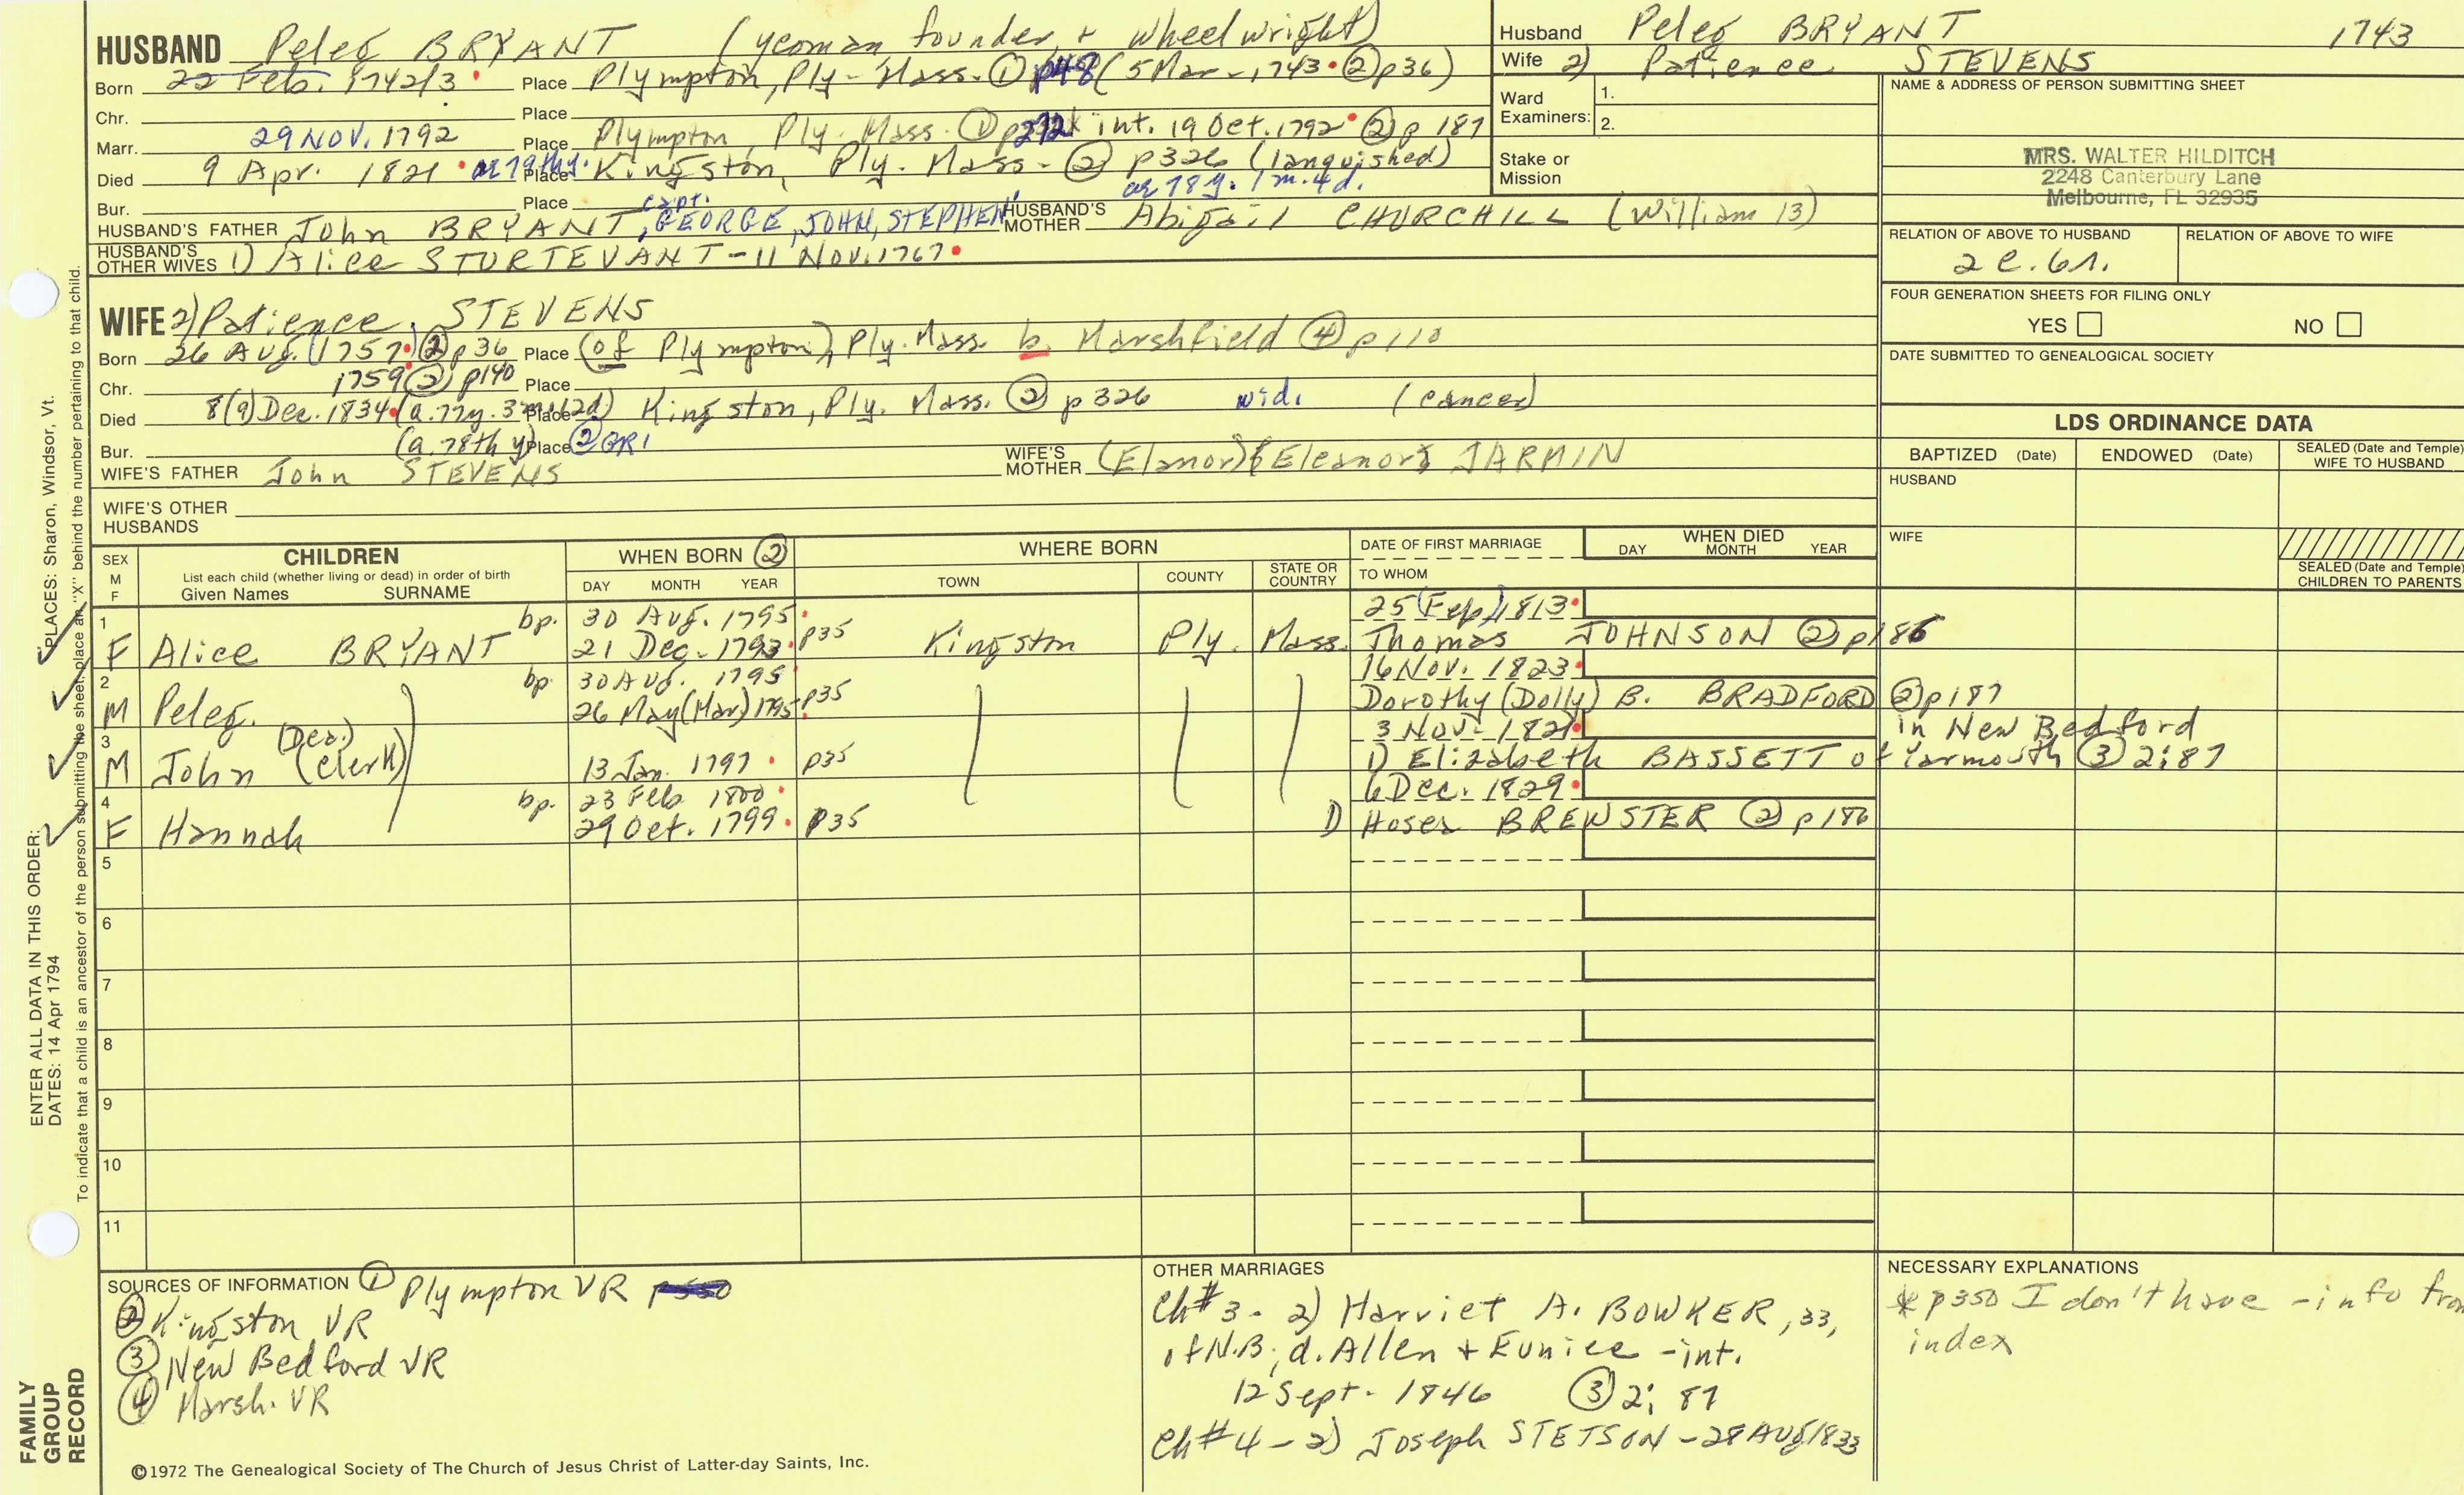 HUSBAND Peleg BRYANT (yeoman founder, + wheelwright)
Born 22 Feb. 1742/3 Place Plympton, Ply- Mass. ① p48 (5 Mar - 1743 ② p36)
Chr. Place
Marr. 29 NOV. 1792 Place Plympton, Ply. Mass. ① p272 int. 19 Oct. 1792 ② p 187
Died 9 Apr. 1821 ae 79thy. Place Kingston, Ply. Mass - ② p326 (languished)
ae 78 y. 1 m. 4 d.
Bur. Place
HUSBAND'S FATHER John BRYANT, capt. GEORGE, JOHN, STEPHEN HUSBAND'S MOTHER Abigail CHURCHILL (William 13)
HUSBAND'S OTHER WIVES 1) Alice STURTEVANT - 11 Nov. 1767
Husband Peleg BRYANT 1743
Wife 2) Patience STEVENS
Ward Examiners: 1.
2.
Stake or Mission
NAME & ADDRESS OF PERSON SUBMITTING SHEET
MRS. WALTER HILDITCH
2248 Canterbury Lane
Melbourne, FL 32935
RELATION OF ABOVE TO HUSBAND
RELATION OF ABOVE TO WIFE
FOUR GENERATION SHEETS FOR FILING ONLY
YES NO
DATE SUBMITTED TO GENEALOGICAL SOCIETY
WIFE 2) Patience STEVENS
Born 26 Aug. (1757 ② p36 Place (of Plympton), Ply. Mass. b. Marshfield ④ p110
Chr. 1759 ② p140 Place
Died 8(9) Dec. 1834 (a. 77y. 3m. 12d) Place Kingston, Ply. Mass. ② p 326 wid. (cancer)
Bur. (a. 78th y) Place ② GR1
WIFE'S FATHER John STEVENS WIFE'S MOTHER (Elanor) {Eleanor} JARMIN
WIFE'S OTHER HUSBANDS
LDS ORDINANCE DATA
BAPTIZED (Date) ENDOWED (Date) SEALED (Date and Temple) WIFE TO HUSBAND
HUSBAND
WIFE
SEALED (Date and Temple) CHILDREN TO PARENTS
SEX M F
CHILDREN
List each child (whether living or dead) in order of birth
Given Names SURNAME
WHEN BORN ②
DAY MONTH YEAR
WHERE BORN
TOWN COUNTY STATE OR COUNTRY
DATE OF FIRST MARRIAGE
TO WHOM
WHEN DIED
DAY MONTH YEAR
1 bp. 30 Aug. 1795 25 (Feb) 1813
F Alice BRYANT 21 Dec - 1793 p35 Kingston Ply. Mass. Thomas JOHNSON ② p186
2 bp. 30 Aug. 1795 16 Nov. 1823
M Peleg 26 May (Mar) 1795 p35 Dorothy (Dolly) B. BRADFORD ② p187
3 (Dea.) 3 Nov. 1821 in New Bedford
M John (Clerk) 13 Jan. 1797 p35 1) Elizabeth BASSETT of Yarmouth ③ 2:87
4 bp. 23 Feb 1800 6 Dec. 1829
F Hannah 29 Oct. 1799 p35 1) Hoses BREWSTER ② p186
5
6
7
8
9
10
11
SOURCES OF INFORMATION ① Plympton VR
② Kingston VR
③ New Bedford VR
④ Marsh. VR
©1972 The Genealogical Society of The Church of Jesus Christ of Latter-day Saints, Inc.
OTHER MARRIAGES
Ch# 3 - 2) Harriet A. BOWKER, 33,
of N.B; d. Allen + Eunice - int.
12 Sept. 1846 ③ 2; 87
Ch# 4 - 2) Joseph STETSON - 28 AUG 1833
NECESSARY EXPLANATIONS
* p350 I don't have - info from
index
FAMILY GROUP RECORD
ENTER ALL DATA IN THIS ORDER:
DATES: 14 Apr 1794
PLACES: Sharon, Windsor, Vt.
To indicate that a child is an ancestor of the person submitting the sheet, place an "X" behind the number pertaining to that child.